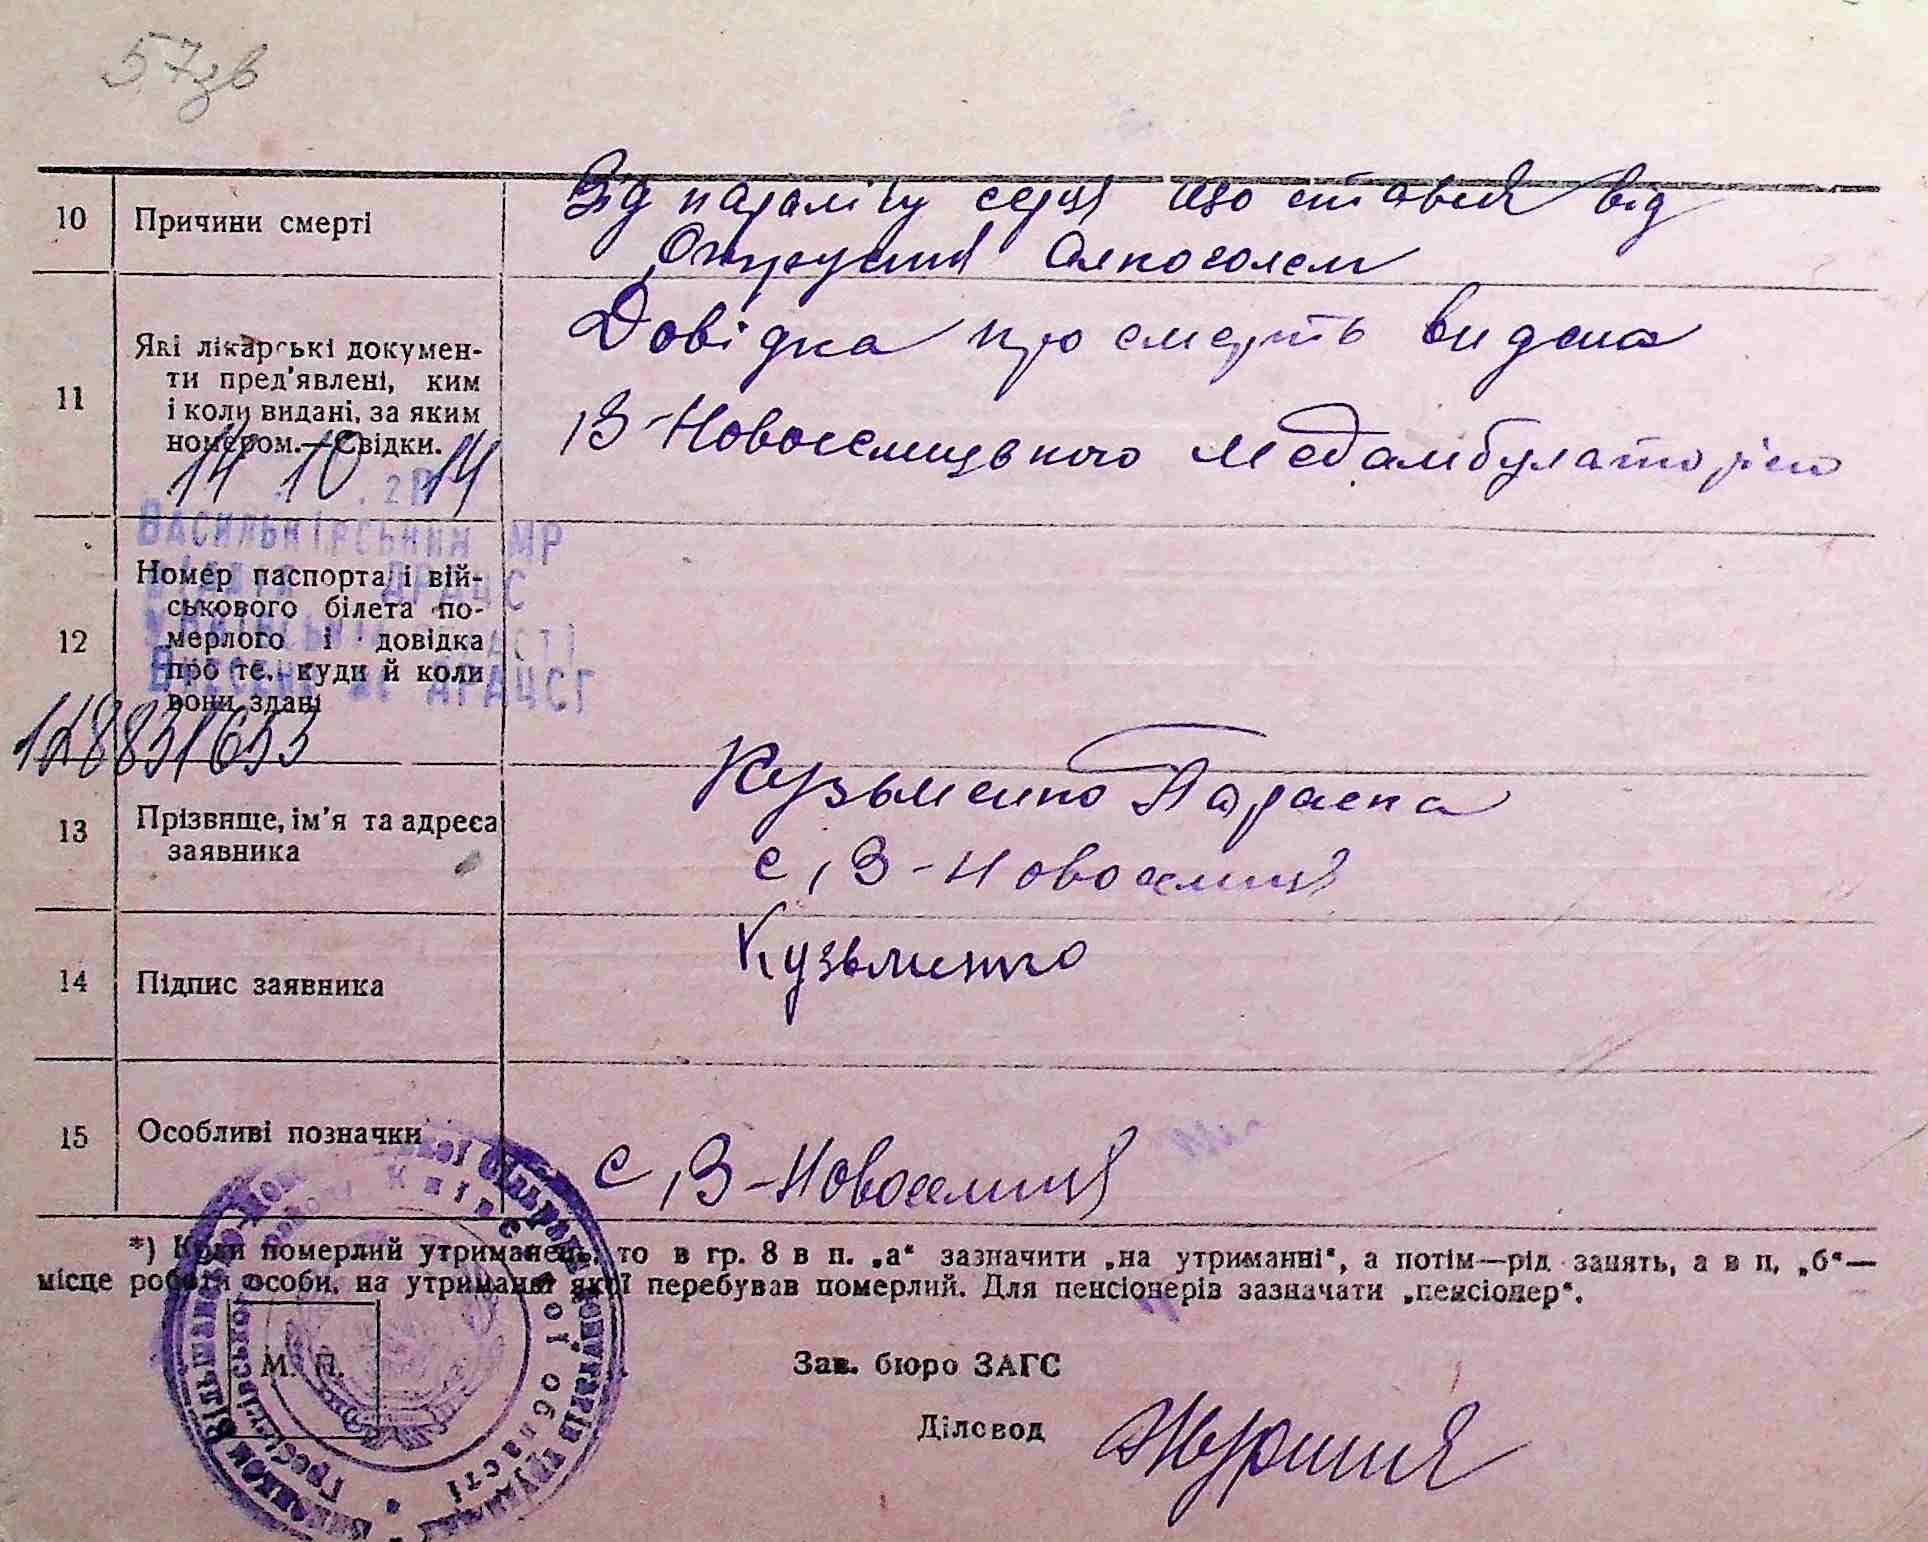 57зв
10 Причини смерті
Від паралічу серця що стався від
Отруєння Алкоголем
11 Які лікарські докумен-
ти пред'явлені, ким
і коли видані, за яким
номером.—Свідки.
Довідка про смерть видана
В-Новоселицького медамбулаторією
14 10 14
Васильківський МР
ДРАЦС
12 Номер паспорта і вій-
ськового білета по-
мерлого і довідка
про те, куди й коли
вони здані
ДРАЦСГ
13 Прізвище, ім'я та адреса
заявника
Кузьменко Параска
с, В-Новоселиця
14 Підпис заявника
Кузьменко
15 Особливі позначки
с, В-Новоселиця
*) Коли померлий утриманець, то в гр. 8 в п. „а“ зазначити „на утриманні“, а потім—рід занять, а в п, „б“—
місце роботи особи, на утриманні якої перебував померлий. Для пенсіонерів зазначати „пенсіонер“.
М. П.
Зав. бюро ЗАГС
Діловод